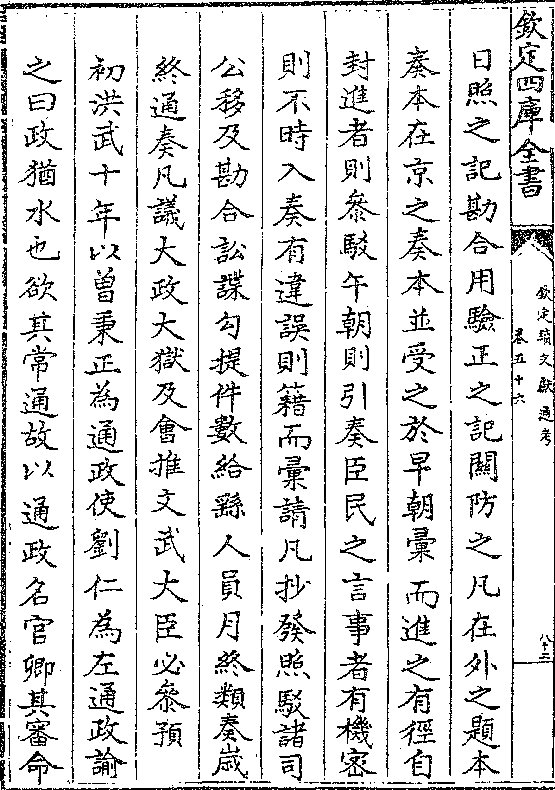 欽定四庫全書
欽定續文獻通考
卷五十六
日照之記勘合用驗正之記關防之凡在外之題本
奏本在京之奏本並受之於早朝彙而進之有徑自
封進者則叅駁午朝則引奏臣民之言事者有機密
則不時入奏有違誤則籍而彙請凡抄發照駁諸司
公移及勘合訟諜勾提件數給繇人員月終類奏嵗
終通奏凡議大政大獄及會推文武大臣必叅預
初洪武十年以曾秉正為通政使劉仁為左通政諭
之曰政猶水也欲其常通故以通政名官卿其審命